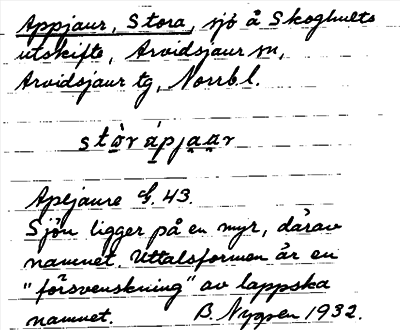 Appjaur, Stora, sjö å Skoghults
utskifte, Arvidsjaur sn,
Arvidsjaur tg, Norrb.l.
stòrápjaar
Apljaure G. 43.
Sjön ligger på en myr, därav
namnet. Uttalsformen är en
"försvenskning" av lappska
namnet. B. Nygren 1932.